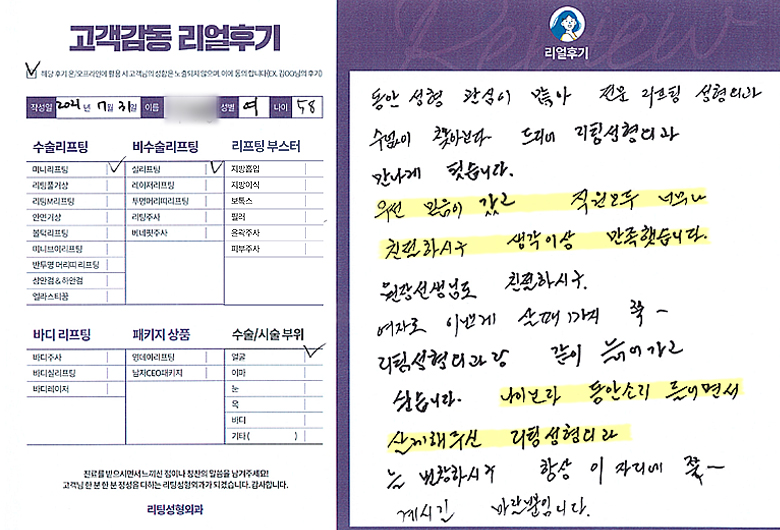 고객감동 리얼후기
해당 후기 온/오프라인에 활용 시 고객님의 성함은 노출되지 않으며, 이에 동의합니다(EX. 김OO님의 후기)
작성일 2021년 7월 31일 이름 성별 여 나이 58
수술리프팅 비수술리프팅 리프팅 부스터
미니리프팅 실리프팅 지방흡입
리팅풀기상 레이저리프팅 지방이식
리팅M리프팅 투명머리띠리프팅 보톡스
안면거상 리팅주사 필러
볼턱리프팅 베네핏주사 윤곽주사
미니브이리프팅 피부주사
반투명 머리띠 리프팅
상안검 & 하안검
엘라스티꿈
바디 리프팅 패키지 상품 수술/시술 부위
바디주사 영데이리프팅 얼굴
바디실리프팅 남자CEO패키지 이마
바디레이저 눈
목
바디
기타( )
진료를 받으시면서 느끼신 점이나 칭찬의 말씀을 남겨주세요!
고객님 한 분 한 분 정성을 다하는 리팅성형외과가 되겠습니다. 감사합니다.
리팅성형외과
Review
리얼후기
동안 성형 관심이 많아 전문 리프팅 성형외과
수없이 찾아본다 드디어 리팅성형외과
만나게 됫습니다.
우선 믿음이 갔고 직원모두 너무나
친절하시구 생각이상 만족했습니다.
원장선생님도 친절하시구.
여자로 이쁘게 살때까지 쭉~
리팅성형외과랑 같이 늙어가고
싶습니다. 나이보다 동안소리 들으면서
살게해주신 리팅성형외과
늘 번창하시구 항상 이 자리에 쭉~
계시길 바랄뿐입니다.